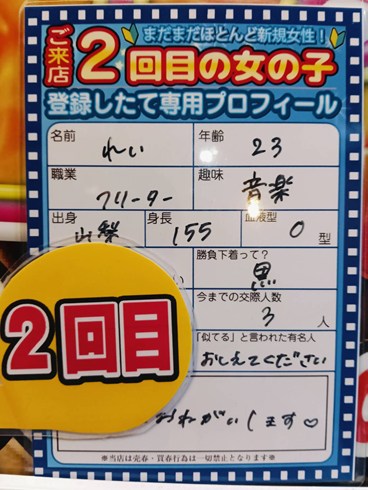 まだまだほとんど新規女性!
ご来店
2回目の女の子
登録したて専用プロフィール
名前 れい 年齢 23
職業 フリーター 趣味 音楽
出身 山梨 身長 155 血液型 O 型
い 勝負下着って? 黒
今までの交際人数
3 人
「似てる」と言われた有名人
おしえてください
2回目
おねがいします♡
※当店は売春・買春行為は一切禁止となります※